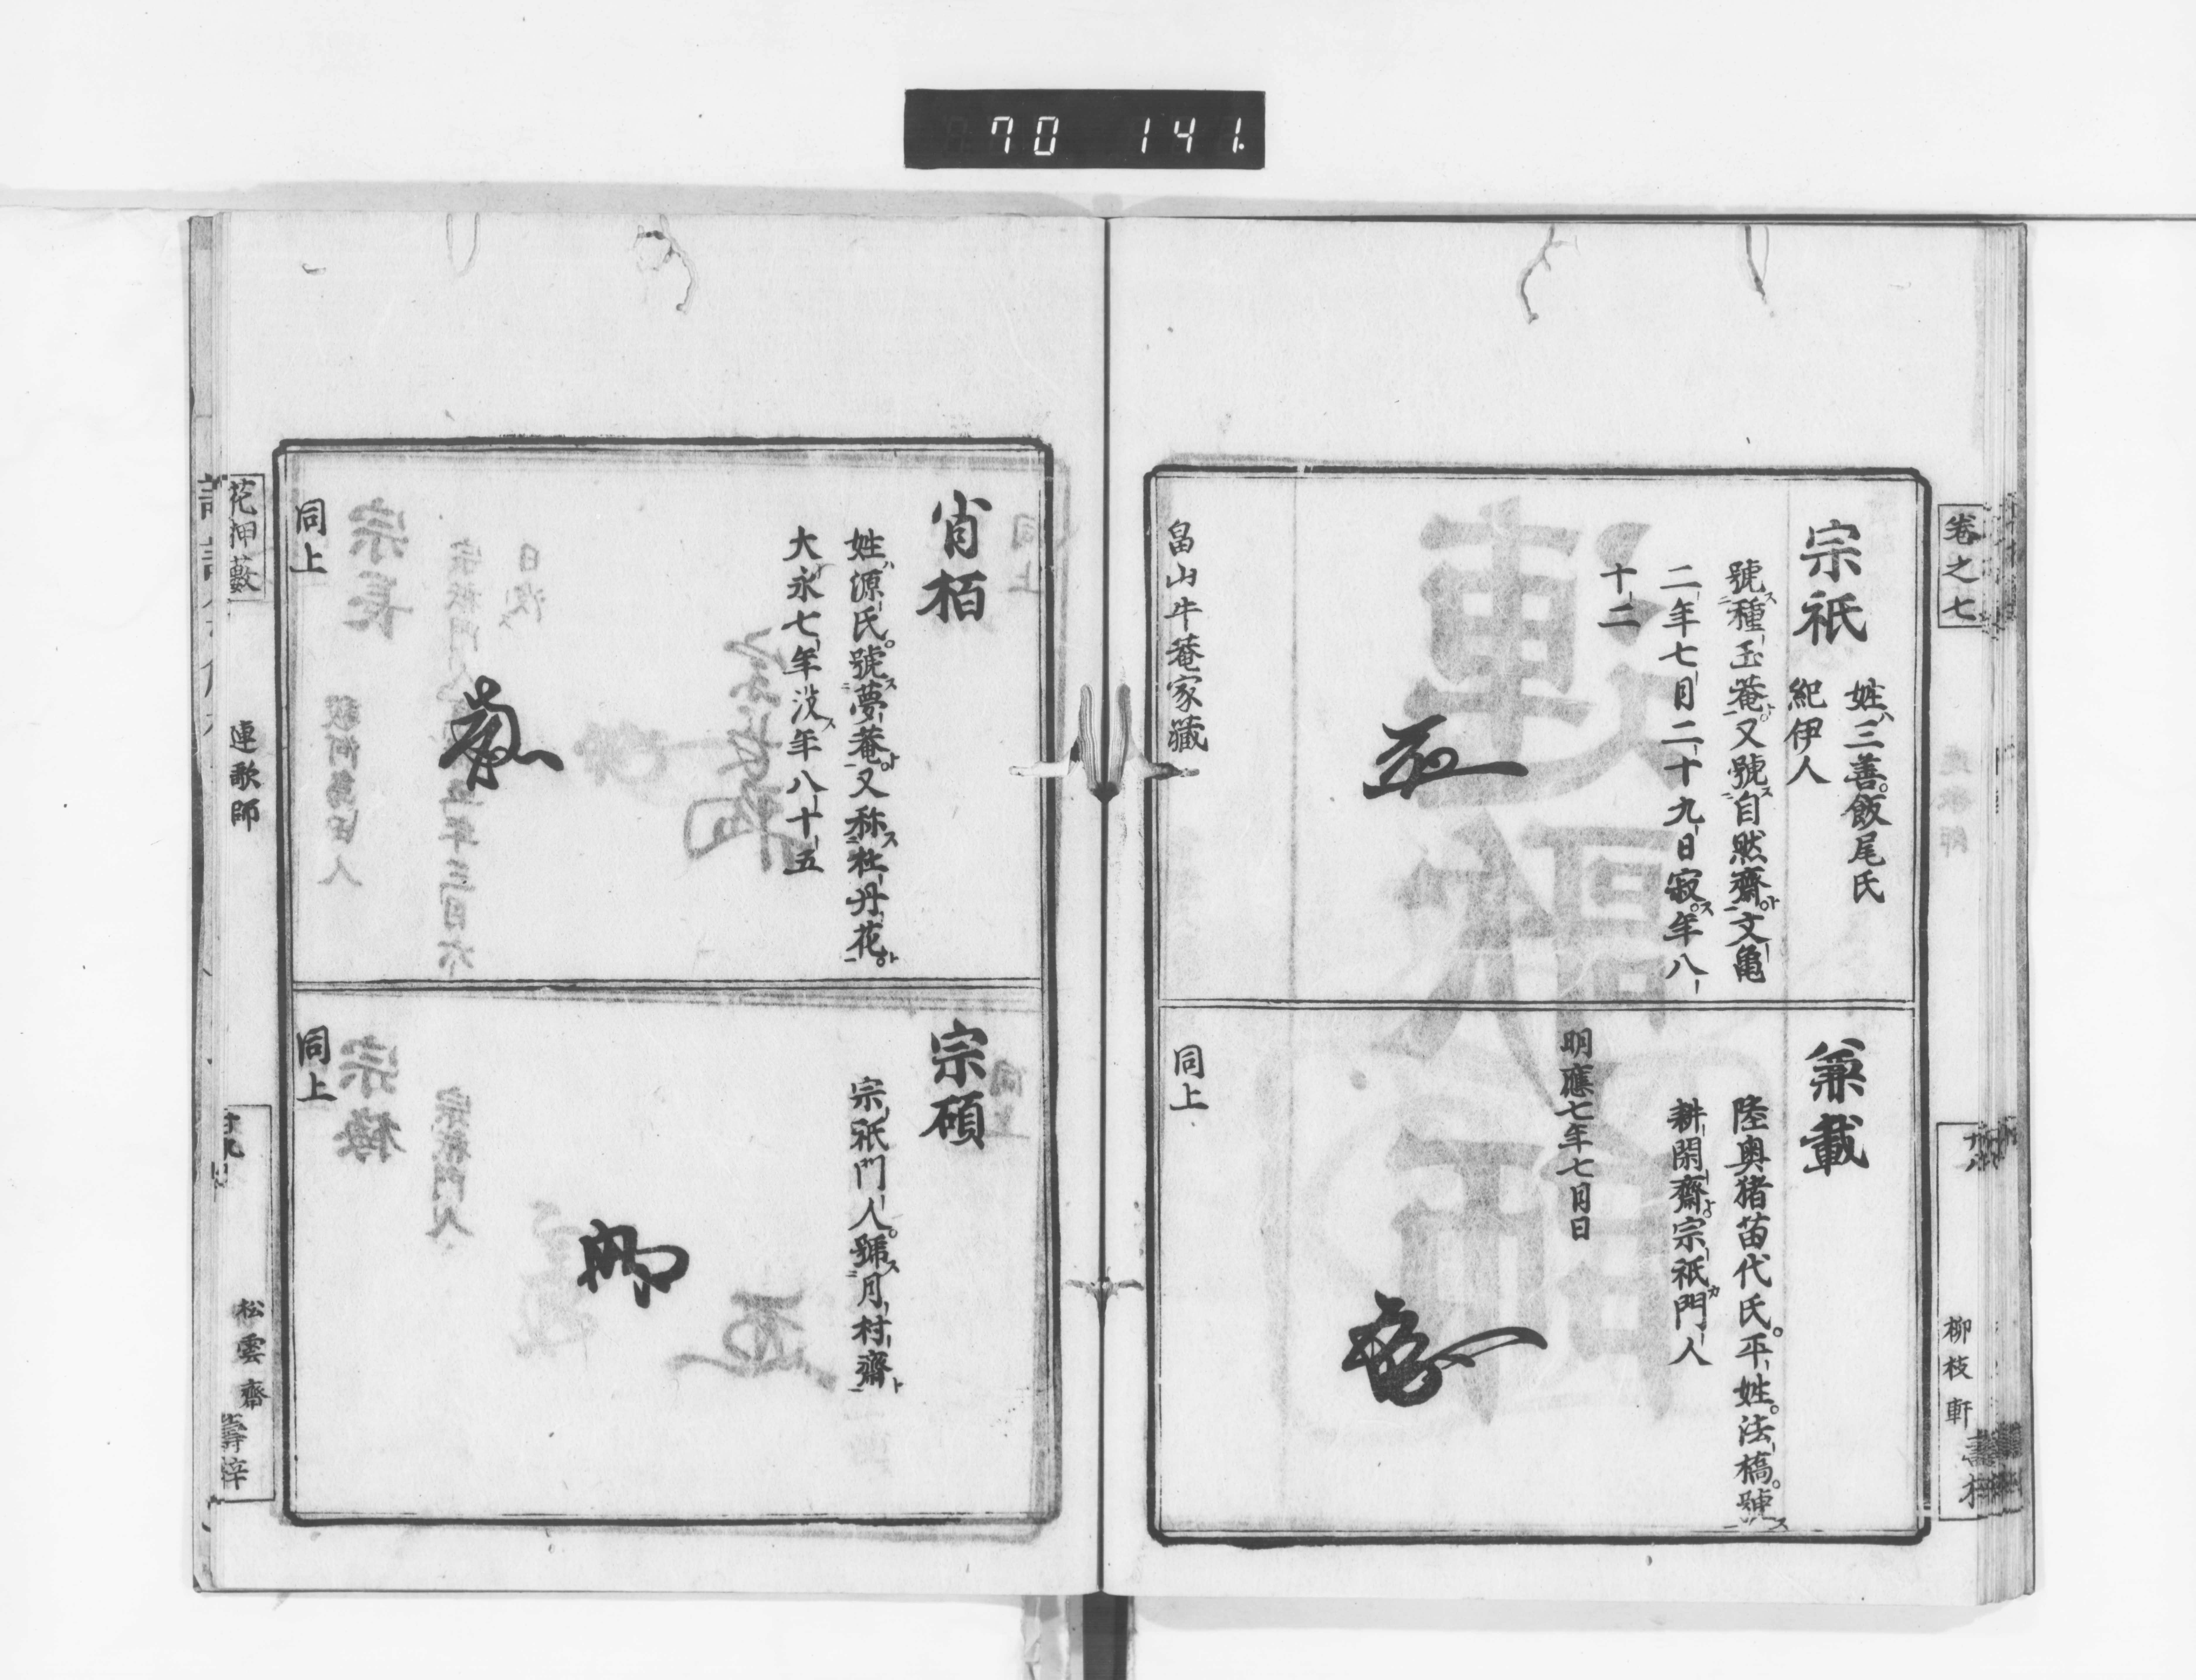 70 141
卷之七
柳枝軒
宗祇
姓ハ三善。飯尾氏
紀伊人
號ス種玉菴ト。又號ス自然齋ト。文亀
二年七月二十九日寂ス。年八
十二
畠山牛菴家藏
兼載
陸奥猪苗代氏。平姓。法橋。號ス
耕閑齋ト。宗祇カ門人
明應七年七月日
同上
肖柏
姓ハ源氏。號ス夢菴ト。又称ス牡丹花ト
大永七年没ス年八十五
同上
宗碩
宗祇門人。號ス月村齋ト
同上
花押藪
連歌師
松雲齋
壽梓